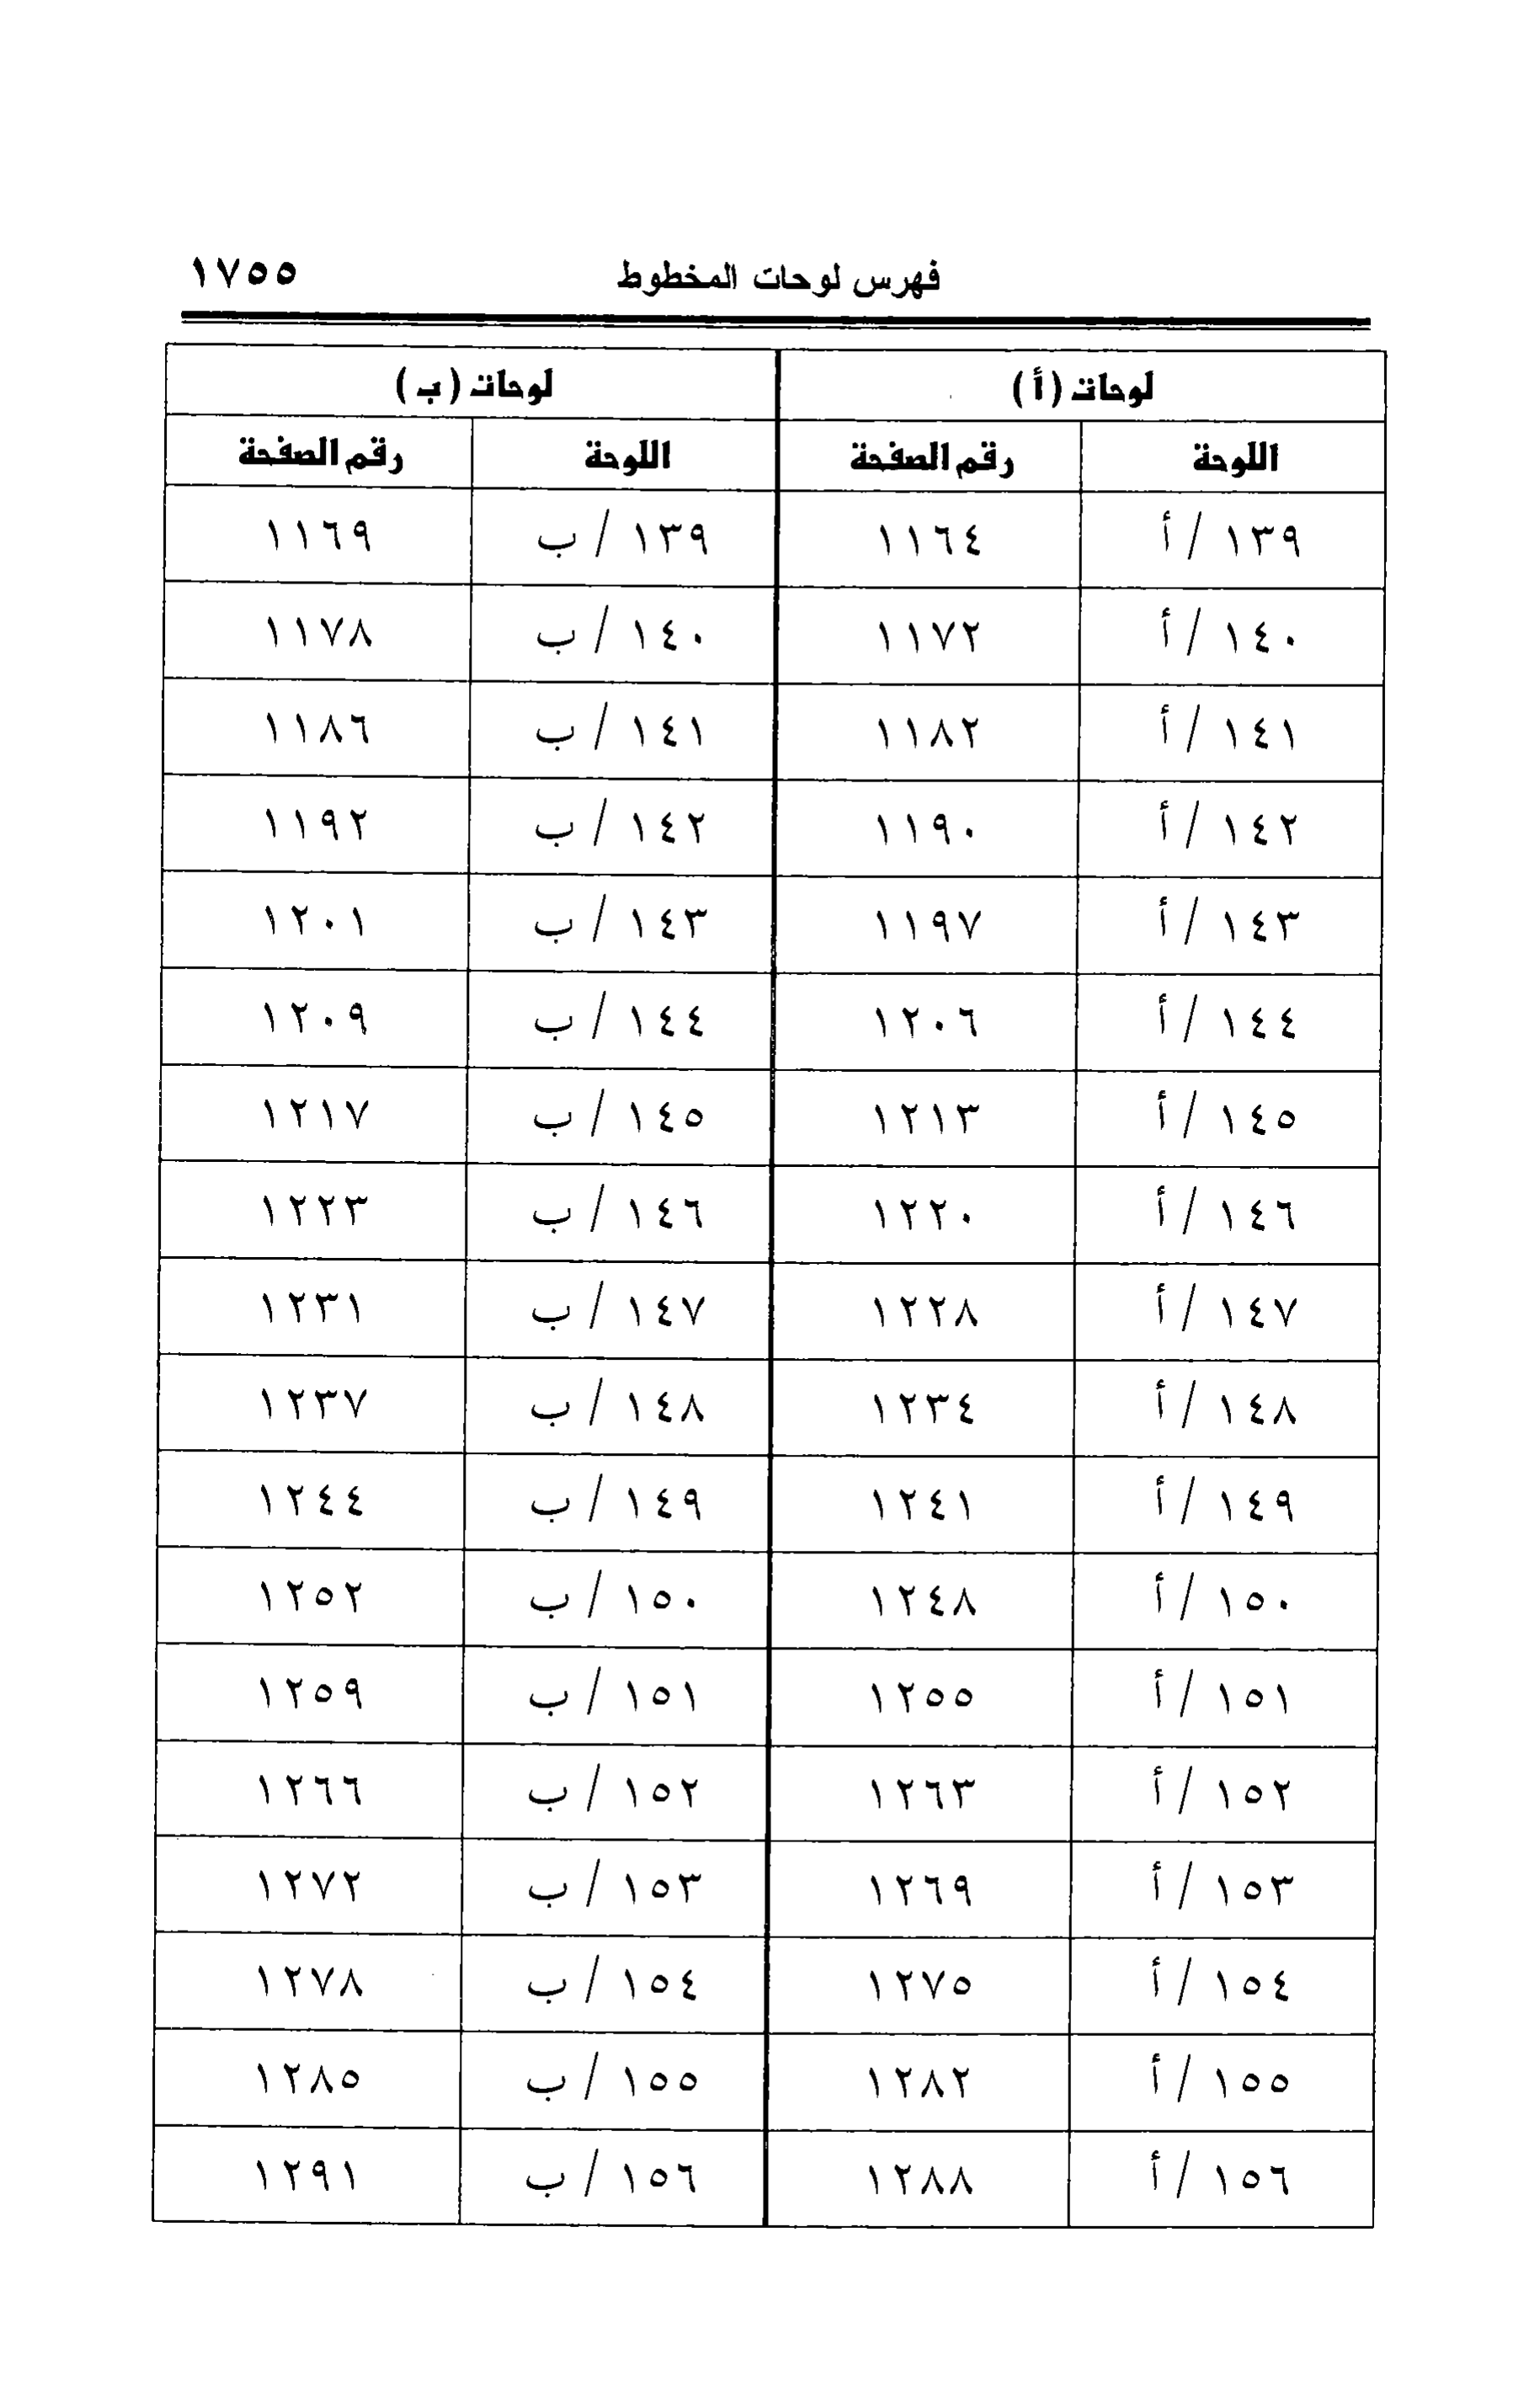 فهرس لوحات المخطوط ١٧٥٥
لوحات (أ) لوحات (ب)
اللوحة رقم الصفحة اللوحة رقم الصفحة
١٣٩ / أ ١١٦٤ ١٣٩ / ب ١١٦٩
١٤٠ / أ ١١٧٢ ١٤٠ / ب ١١٧٨
١٤١ / أ ١١٨٢ ١٤١ / ب ١١٨٦
١٤٢ / أ ١١٩٠ ١٤٢ / ب ١١٩٢
١٤٣ / أ ١١٩٧ ١٤٣ / ب ١٢٠١
١٤٤ / أ ١٢٠٦ ١٤٤ / ب ١٢٠٩
١٤٥ / أ ١٢١٣ ١٤٥ / ب ١٢١٧
١٤٦ / أ ١٢٢٠ ١٤٦ / ب ١٢٢٣
١٤٧ / أ ١٢٢٨ ١٤٧ / ب ١٢٣١
١٤٨ / أ ١٢٣٤ ١٤٨ / ب ١٢٣٧
١٤٩ / أ ١٢٤١ ١٤٩ / ب ١٢٤٤
١٥٠ / أ ١٢٤٨ ١٥٠ / ب ١٢٥٢
١٥١ / أ ١٢٥٥ ١٥١ / ب ١٢٥٩
١٥٢ / أ ١٢٦٣ ١٥٢ / ب ١٢٦٦
١٥٣ / أ ١٢٦٩ ١٥٣ / ب ١٢٧٢
١٥٤ / أ ١٢٧٥ ١٥٤ / ب ١٢٧٨
١٥٥ / أ ١٢٨٢ ١٥٥ / ب ١٢٨٥
١٥٦ / أ ١٢٨٨ ١٥٦ / ب ١٢٩١